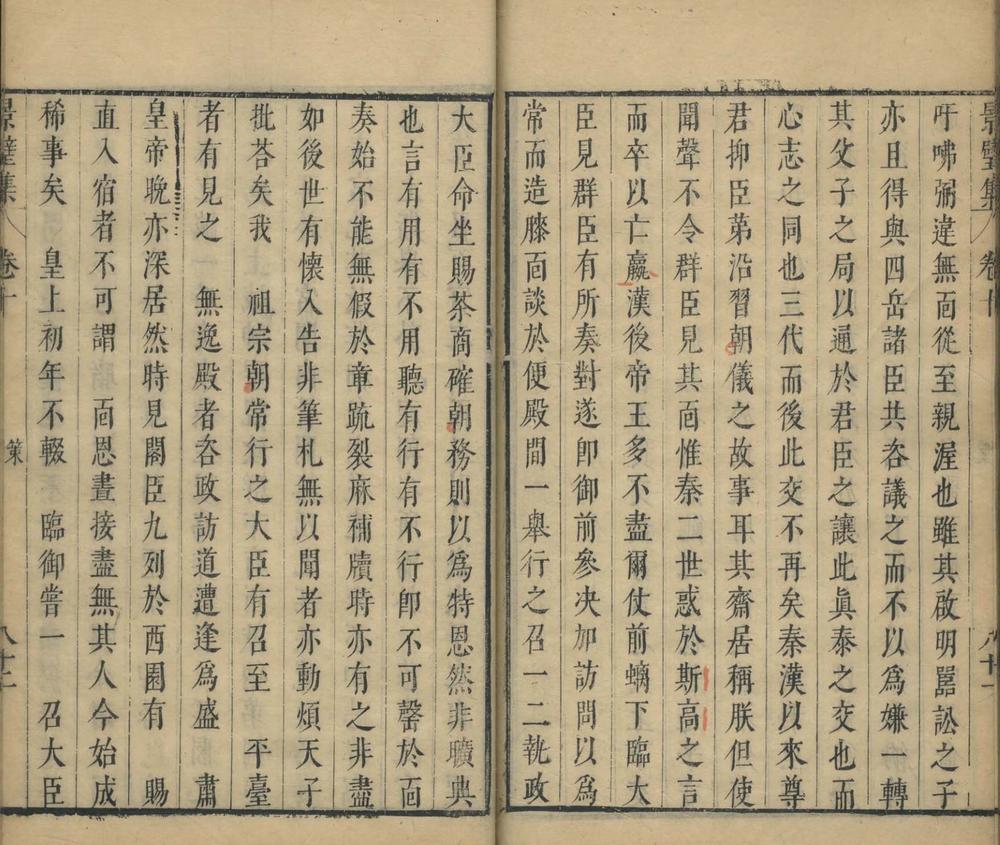 景璧集 卷十
吁咈弼違無靣從至親渥也雖其啟明嚚訟之子
亦且得與四岳諸臣共咨議之而不以爲嫌一轉
其父子之局以通於君臣之讓此眞泰之交也而
心志之同也三代而後此交不再矣秦漢以來尊
君抑臣第沿習朝儀之故事耳其齋居稱朕但使
聞聲不令群臣見其靣惟秦二世惑於斯高之言
而卒以亡嬴漢後帝王多不盡爾仗前螭下臨大
臣見群臣有所奏對遂卽御前參決加訪問以爲
常而造膝靣談於便殿間一舉行之召一二執政
大臣命坐賜茶商確朝務則以爲特恩然非曠典
也言有用有不用聽有行有不行卽不可罄於靣
奏始不能無假於章疏裂麻補牘時亦有之非盡
如後世有懷入告非筆札無以聞者亦動煩天子
批荅矣我 祖宗朝常行之大臣有召至 平臺
者有見之 無逸殿者咨政訪道遭逢爲盛 肅
皇帝晚亦深居然時見閣臣九列於西園有 賜
直入宿者不可謂 靣恩晝接盡無其人今始成
稀事矣 皇上初年不輟 臨御嘗一 召大臣
景璧集 卷十 策 八十二